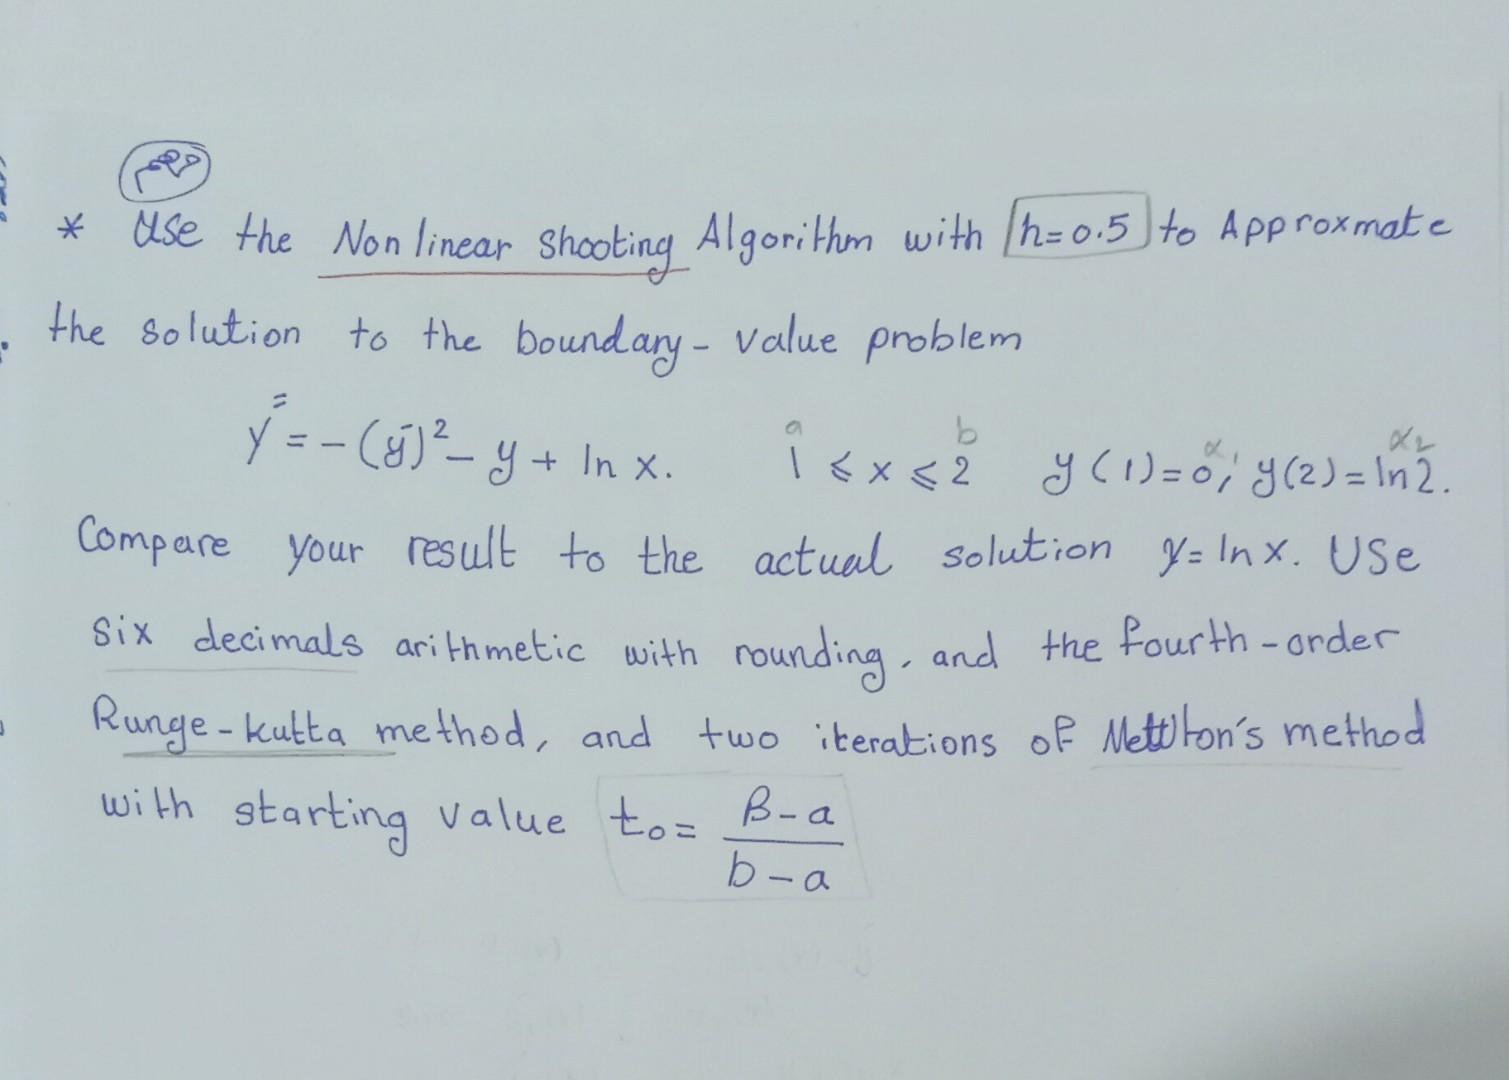 * Use the Non linear Shooting Algorithm with h=0.5 to Approxmate
the solution to the boundary - value problem
y̿ = - (ȳ)² - y + ln x. a 1 ⩽ x ⩽ b 2 y(1)=0, α₁ y(2)= ln 2. α₂
Compare your result to the actual solution y= ln x. Use
six decimals arithmetic with rounding, and the fourth-order
Runge-kutta method, and two iterations of method
with starting value t₀= β-a / b-a